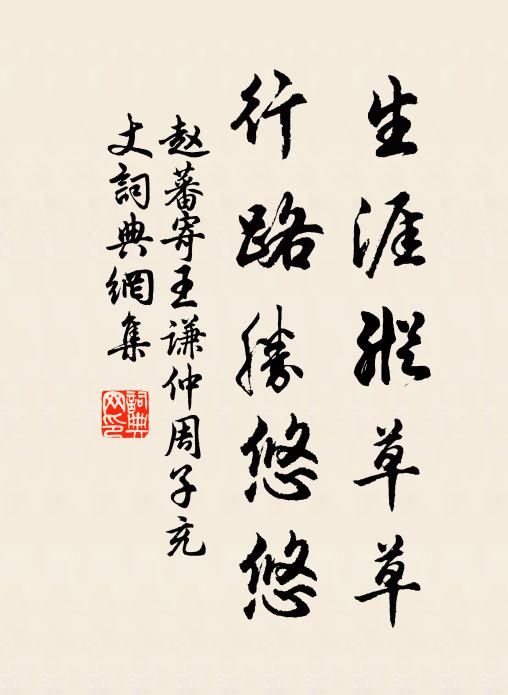 生涯縱草草
行路勝悠悠
赵蕃寄王谦仲周子充
丈詞典網集
詞典网印